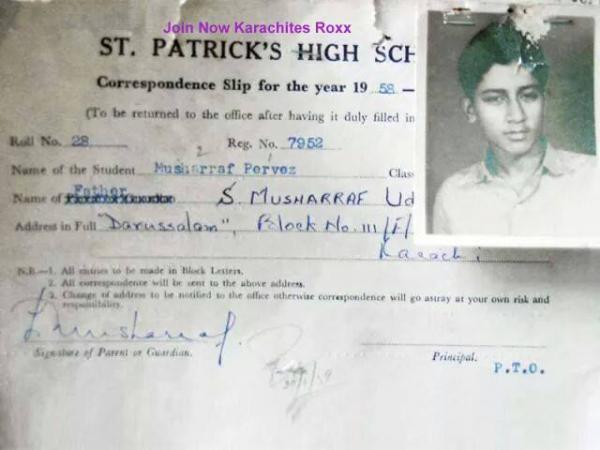 Join Now Karachites Roxx
ST. PATRICK'S HIGH SCH
Correspondence Slip for the year 19 58 —
(To be returned to the office after having it duly filled in
Roll No. 28 Reg. No. 7952
Name of the Student Musharraf Pervez Class
Name of Father S. MUSHARRAF Ud
Address in Full "Darussalam", Block No. III/E/
Karachi
N.B.—1. All entries to be made in Block Letters.
2. All correspondence will be sent to the above address.
3. Change of address to be notified to the office otherwise correspondence will go astray at your own risk and
responsibility.
S. Musharraf.
Signature of Parent or Guardian.
Principal.
P.T.O.